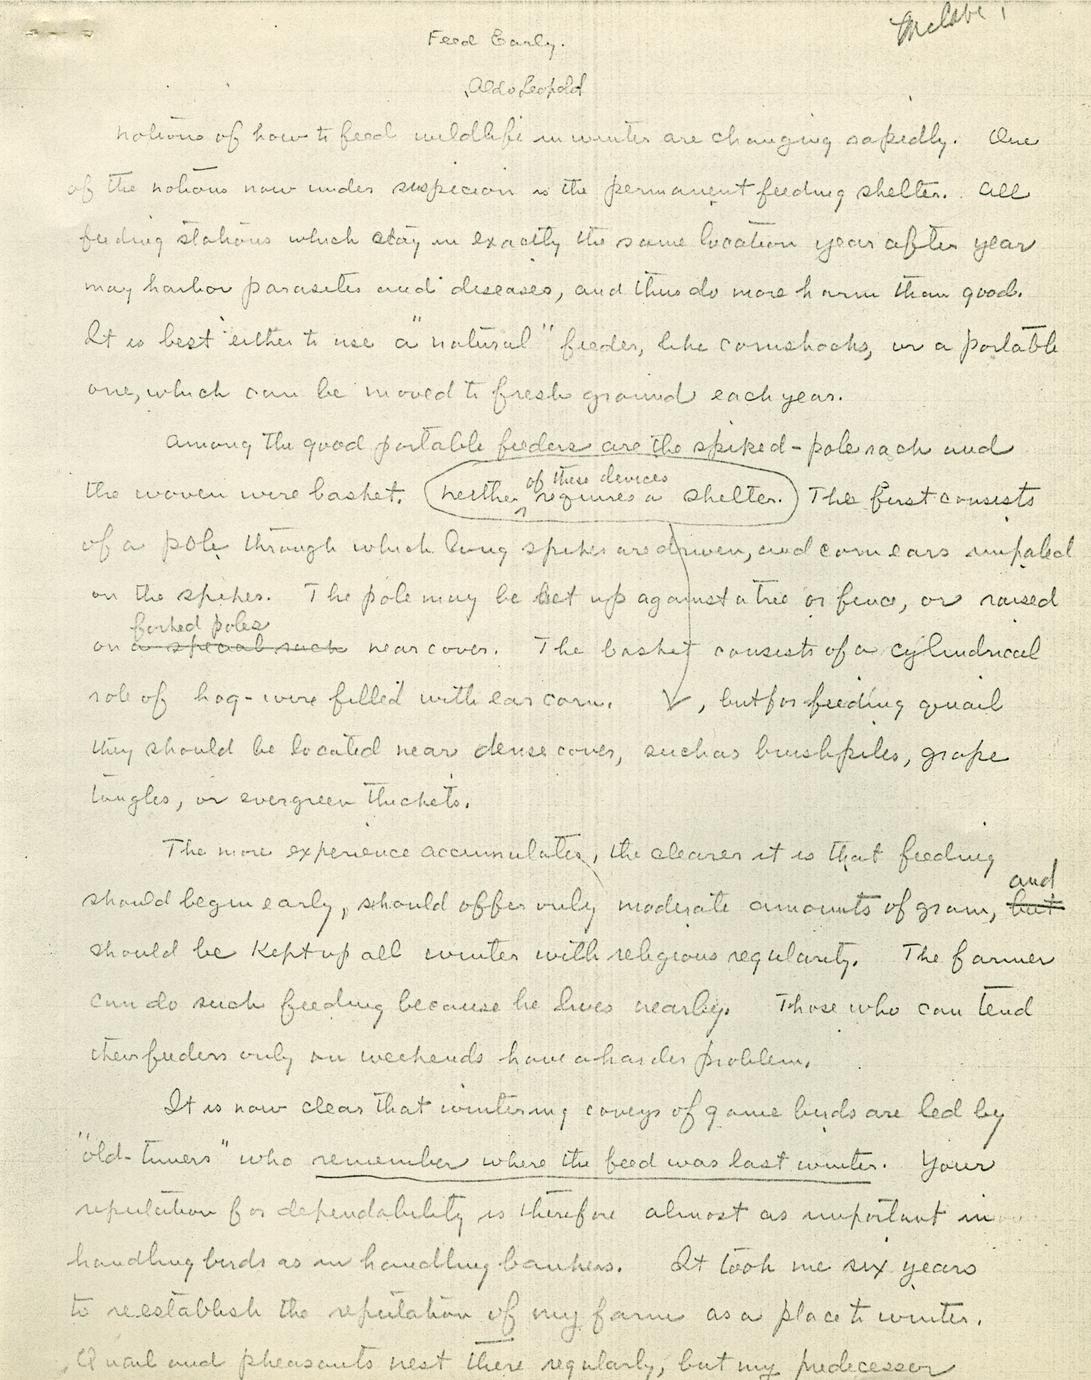 McCabe
Feed Early.
Aldo Leopold
Notions of how to feed wildlife in winter are changing rapidly. One
of the notions now under suspicion is the permanent feeding shelter. All
feeding stations which stay in exactly the same location year after year
may harbor parasites and diseases, and thus do more harm than good.
It is best either to use a "natural" feeder, like cornshocks, or a portable
one, which can be moved to fresh ground each year.
Among the good portable feeders are the spiked-pole rack and
of these devices
the woven wire basket. Neither requires a shelter. The first consists
of a pole through which long spikes are driven, and corn ears impaled
on the spikes. The pole may be set up against a tree or fence, or raised
forked poles
on a special rack near cover. The basket consists of a cylindrical
role of hog-wire filled with ear corn. , but for feeding quail
they should be located near dense cover, such as brushpiles, grape
tangles, or evergreen thickets.
The more experience accumulates, the clearer it is that feeding
and
should begin early, should offer only moderate amounts of grain, but
should be kept up all winter with religious regularity. The farmer
can do such feeding because he lives nearby. Those who can tend
their feeders only on weekends have a harder problem.
It is now clear that wintering coveys of game birds are led by
"old-timers" who remember where the feed was last winter. Your
reputation for dependability is therefore almost as important in
handling birds as in handling bankers. It took me six years
to re-establish the reputation of my farm as a place to winter.
Quail and pheasants nest there regularly, but my predecessor